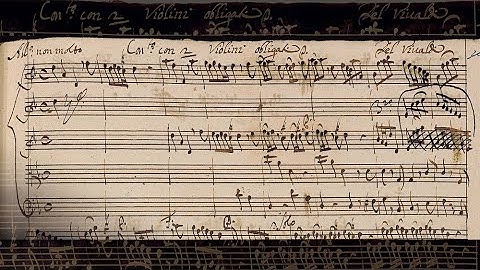 Con.to con 2 Violini obligati Del Vivaldi
All.o non molto Con.to con 2 Violini obligati Del Vivaldi
p.
Solo